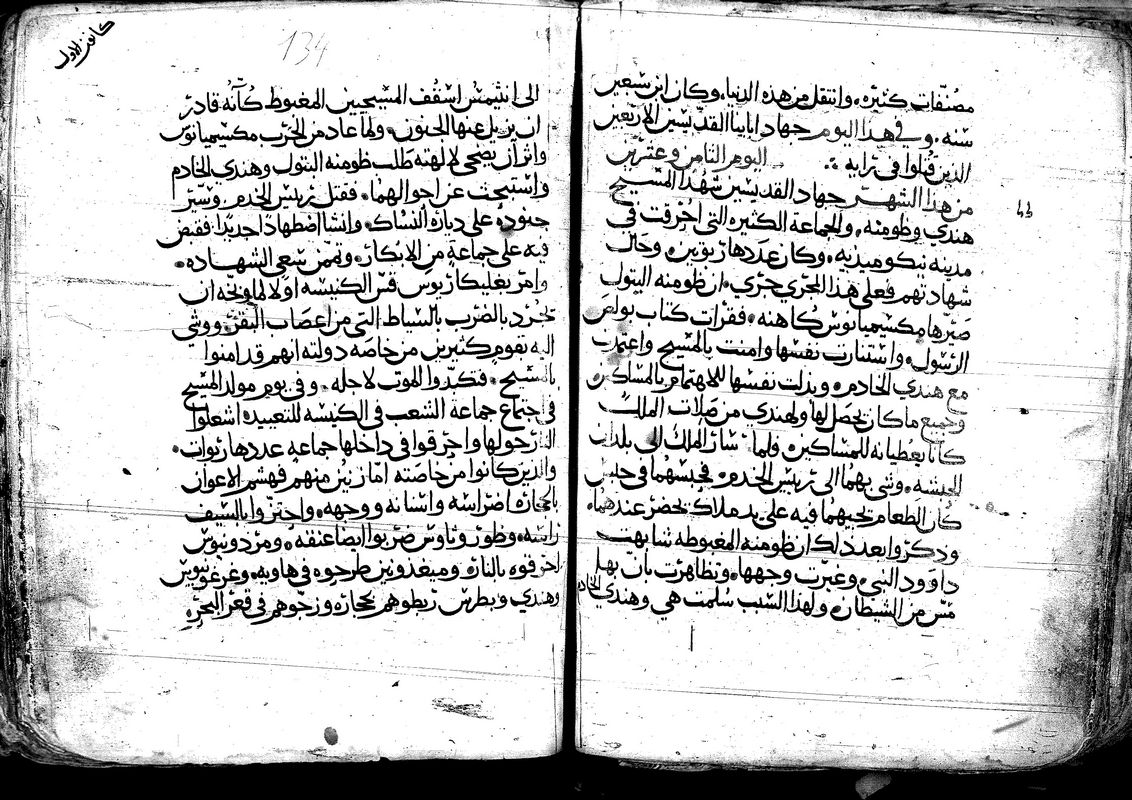 مصنفات كثيره. وانتقل من هذه الدنيا، وكان ابن سبعين
سنه. وفي هذا اليوم جهاد ابائنا القديسين الاربعين
الذين قتلوا في ترابه. اليوم الثامن وعشرين
من هذا الشهر جهاد القديسين شهدا المسيح
هندي وظومنه. والجماعة الكثيره التي احرقت في
مدينه نيكوميديه. وكان عددها ربوتين. وحال
شهادتهم فعلى هذا المجرى جرى. ان ظومنه البتول
صيرها مكسيميانوس كاهنه. فقرات كتاب بولص
الرسول. واستنارت نفسها وامنت بالمسيح واعتمدت
مع هندي الخادم. وبذلت نفسها للاهتمام بالمساكين
وجميع ما كان يحصل لها ولهندي من صلات الملك
كانا يعطيانه للمساكين. فلما سار الملك الى بلدان
الحبشه. وشي بهما الى رييس الخدم. فحبسهما في حبس
كان الطعام يجيهما فيه على يد ملاك يحضر عندهما.
وذكروا بعد ذلك ان ظومنه المغبوطه تشابهت
داوود النبي. وغيرت وجهها. وتظاهرت بان بها
مس من الشيطان. ولهذا السبب سلمت هي وهندي الخادم
كانون الاول
134
الى انثيمس اسقف المسيحيين المغبوط كانه قادر
ان يزيل عنها الجنون. ولما عاد من الحرب مكسيميانوس
واثر ان يضحي لالهته طلب ظومنه البتول وهندي الخادم
واستبحث عن احوالهما. فقتل رييس الخدم. وسير
جنوده على ديارة النساك. وانشا اضطهادا جديدا فقبض
فيه على جماعة من الابكار. وتممن سعي الشهاده.
وامر بغليكاريوس قس الكنيسه اولا لما وبخه ان
يجرد بالضرب بالسياط التي من اعصاب البقر. ووشى
اليه بقوم كثيرين من خاصه دولته انهم قد امنوا
بالمسيح. فكدوا الموت لاجله. وفي يوم مولد المسيح
في اجتماع جماعة الشعب في الكنيسه للتعييد اشعلوا
النار حولها واحرقوا في داخلها جماعه عددها ربوات.
والذين كانوا من خاصته اما زينن منهم فهشم الاعوان
بالحجاره اضراسه واسنانه ووجهه. واحتزوا بالسيف
راسه. وظوروثاوس ضربوا ايضا عنقه. ومردونيوس
احرقوه بالنار. وميغذونيس طرحوه في هاويه. وغرغونيوس
وهندي وبطرس ربطوهم بحجاره وزجوهم في قعر البحر.